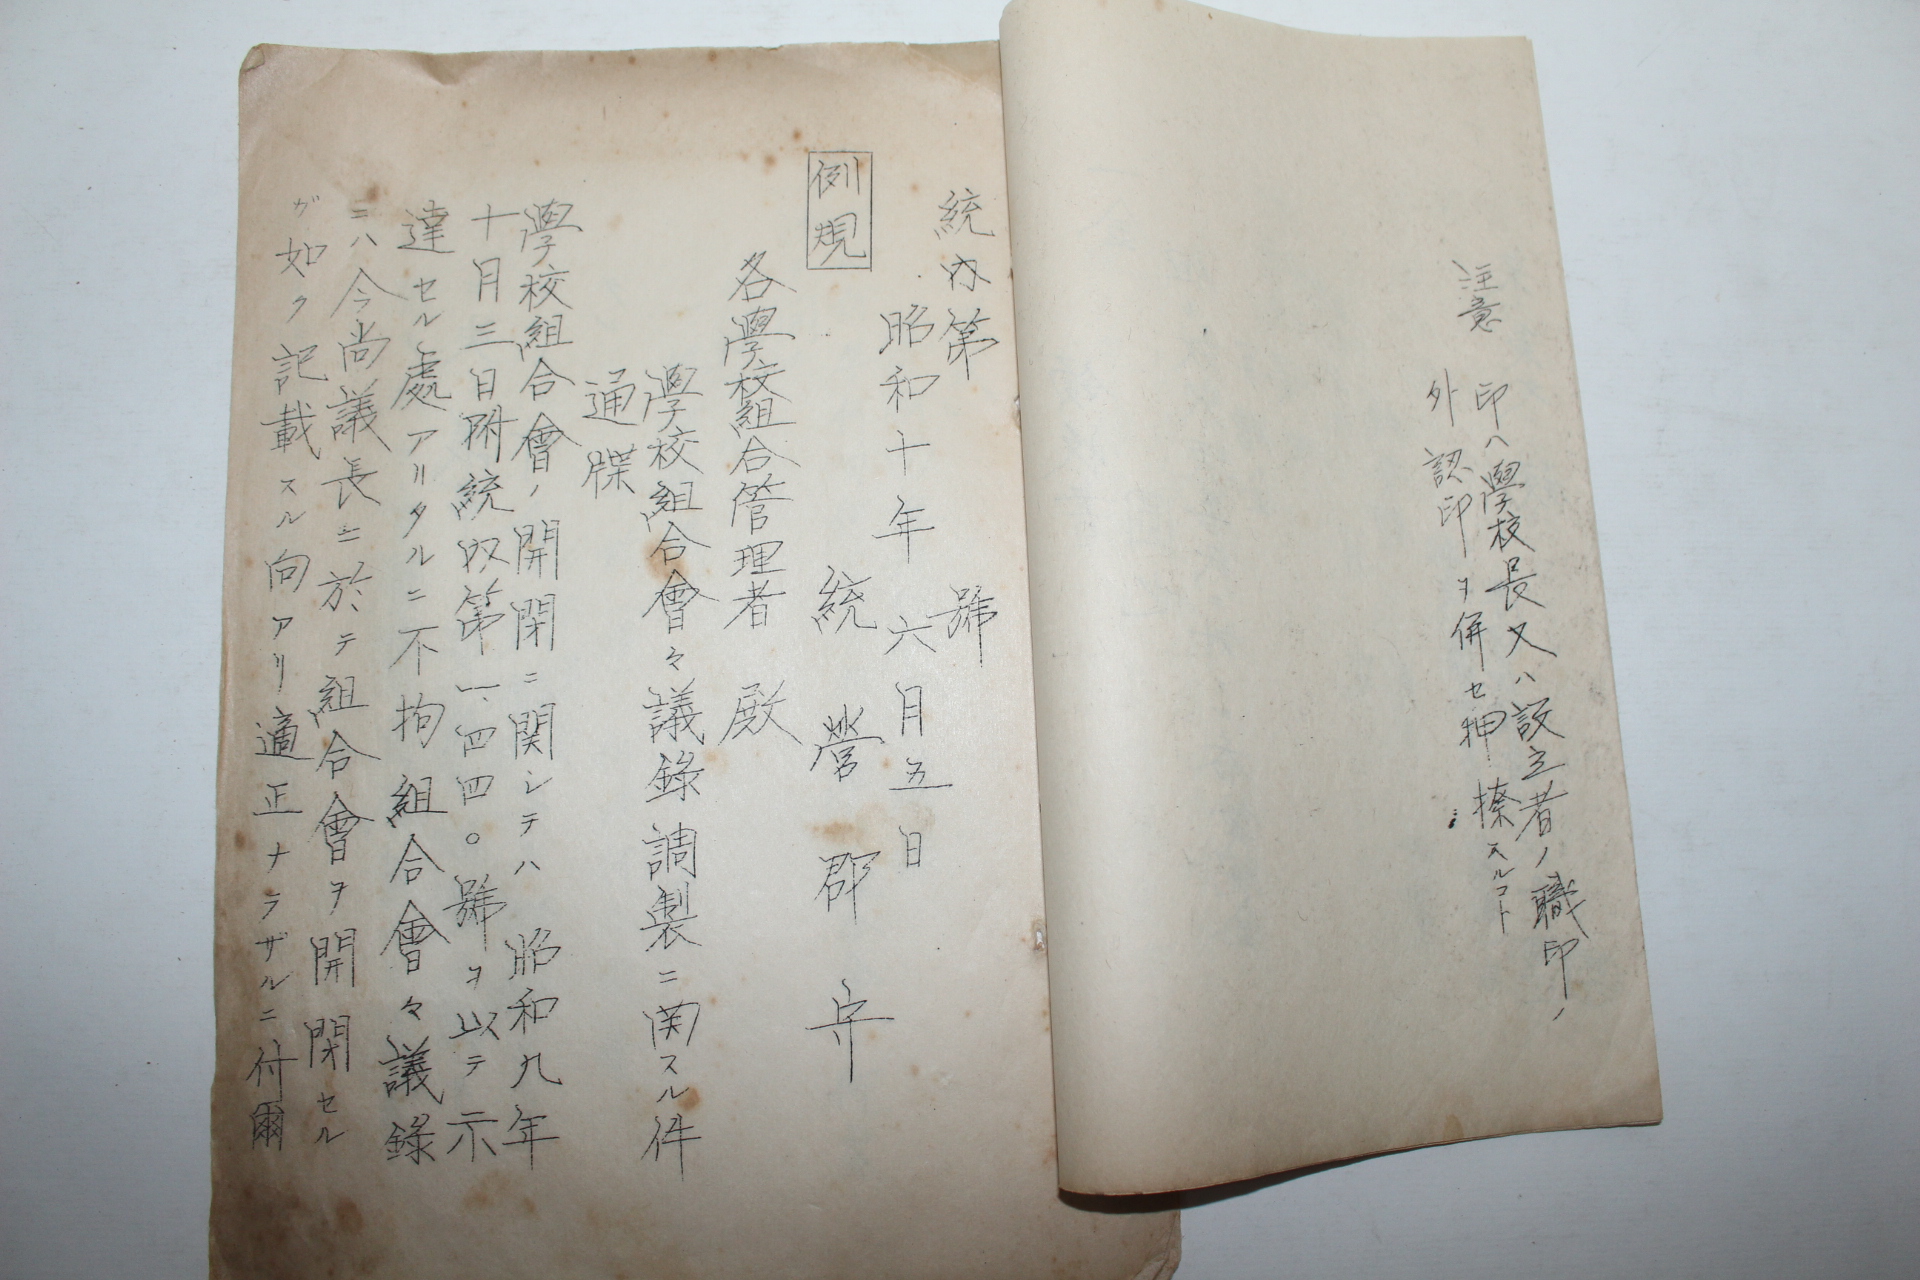 注意
印ハ學校長又ハ設立者ノ職印ノ
外認印ヲ併セ押捺スルコト
統内第　　號
昭和十年六月五日
例規
統營郡守
各學校組合管理者　殿
學校組合會々議錄調製ニ関スル件
通牒
學校組合會ノ開閉ニ関シテハ昭和九年
十月三日附統収第一、四四〇號ヲ以テ示
達セル處アリタルニ不拘組合會々議錄
ニハ今尚議長ニ於テ組合會ヲ開閉セル
ガ如ク記載スル向アリ適正ナラザルニ付爾